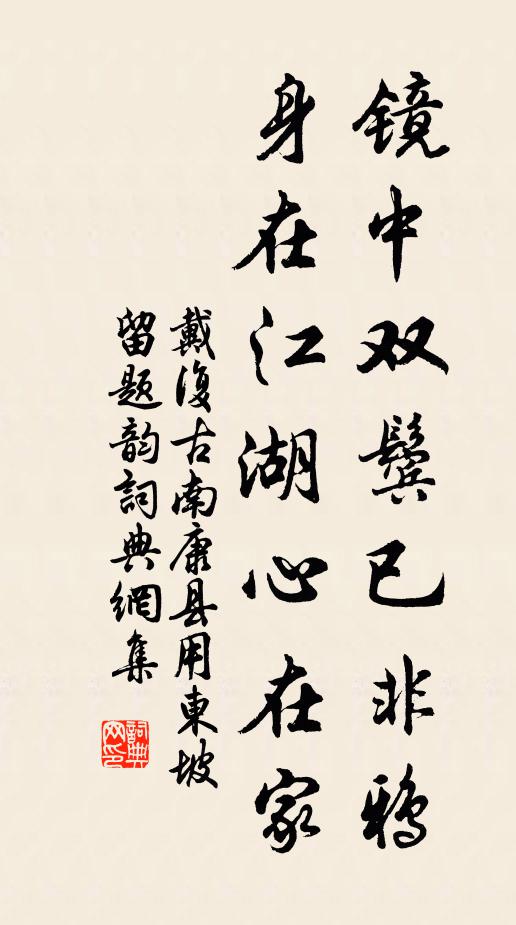 镜中双鬓已非鸦
身在江湖心在家
戴復古南康县用東坡
留题韵詞典網集
詞典网印